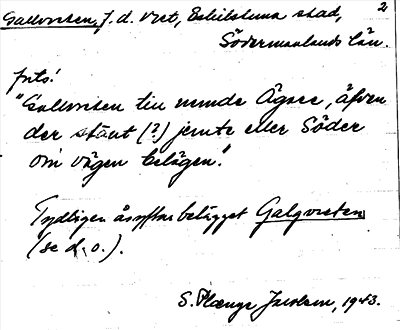 Gallvreten, f. d. vret, Eskilstuna stad, 2
Södermanlands län.
Jnts!
"Gallvreten till nunde Ägare, äfven
der stäut (?) jemte eller Söder
om vägen belägen!
Tydligen åsyftar belägget Galgvreten
(se d. o.).
S. Plænge Jacobson, 1943.